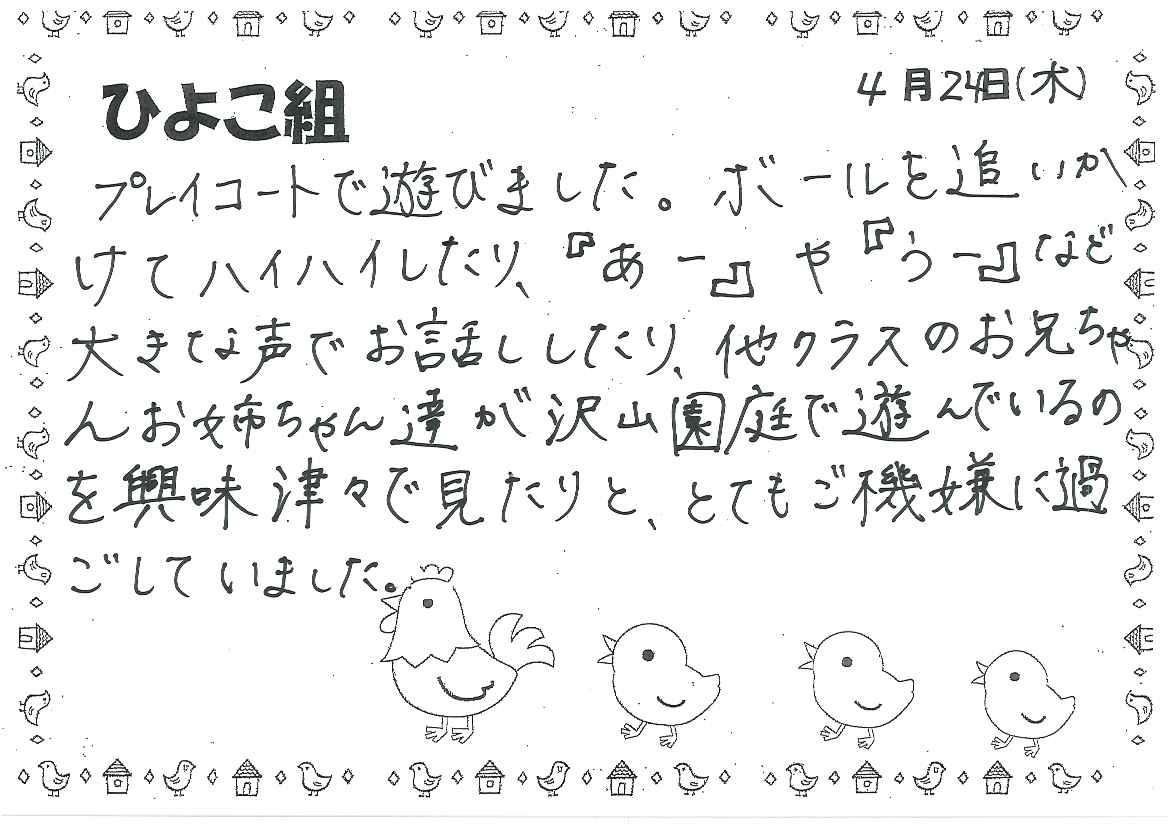 ひよこ組
4月24日(木)
プレイコートで遊びました。ボールを追いか
けてハイハイしたり、『あー』や『うー』など
大きな声でお話ししたり、他クラスのお兄ちゃ
んお姉ちゃん達が沢山園庭で遊んでいるの
を興味津々で見たりと、とてもご機嫌に過
ごしていました。